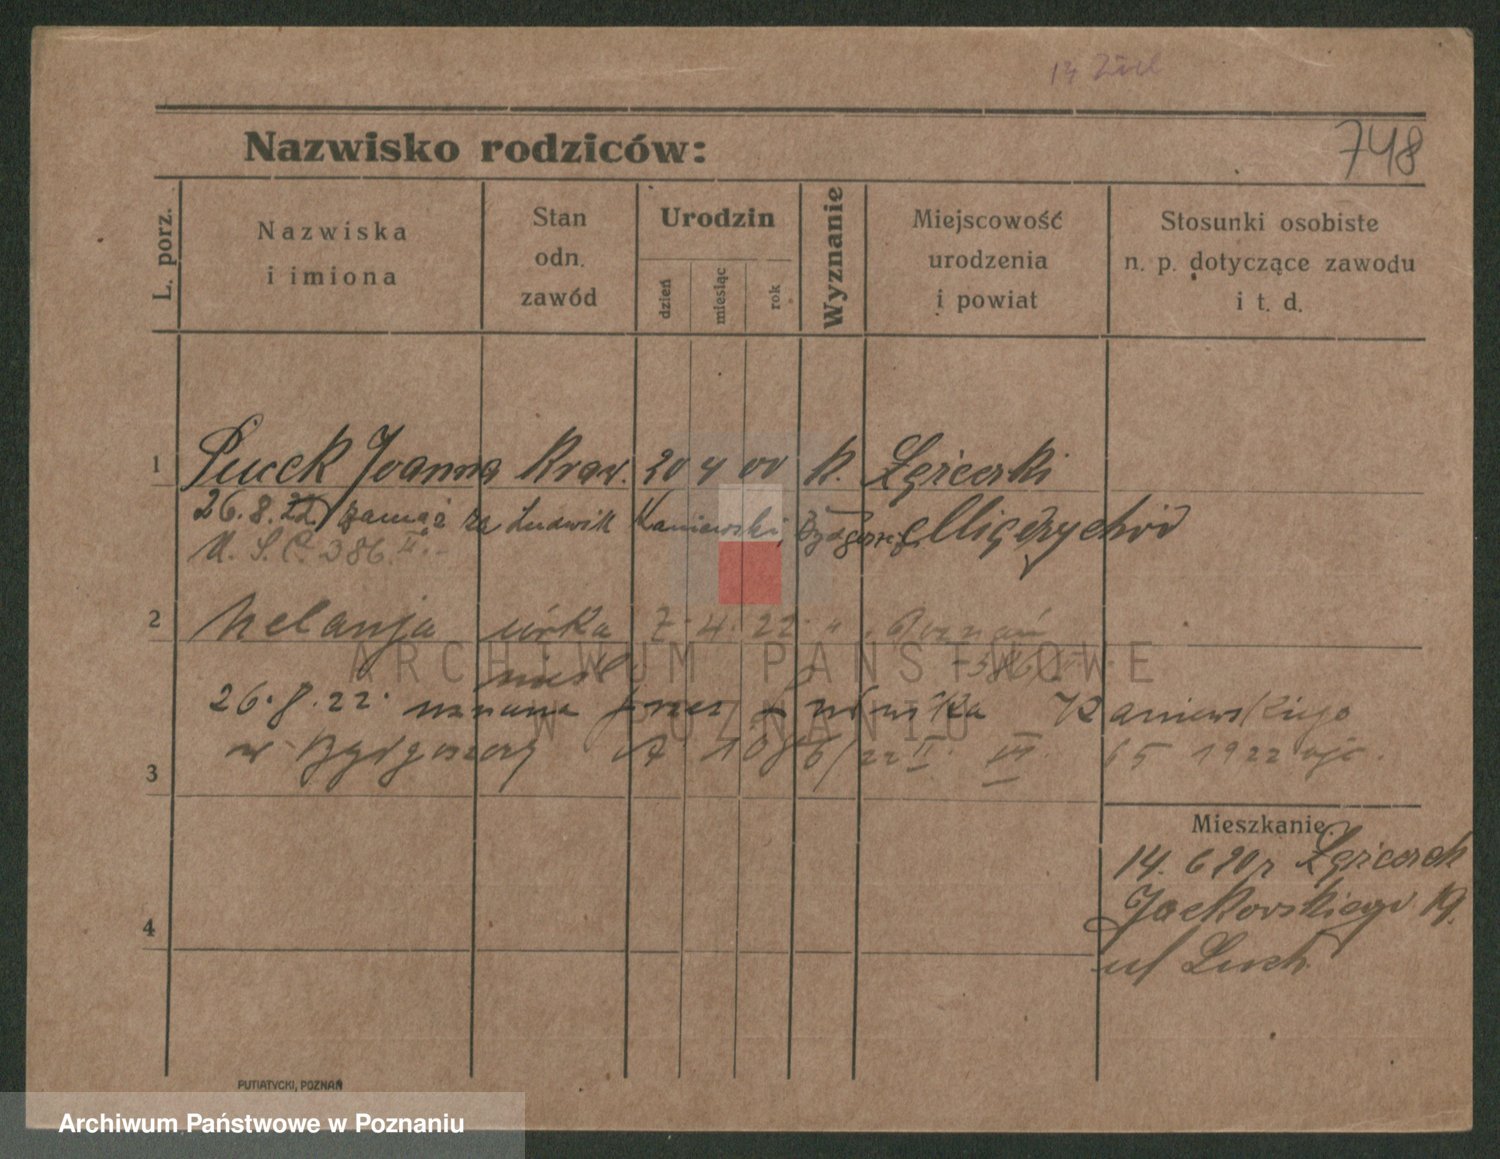 748
Nazwisko rodziców:
L. porz.
Nazwiska
i imiona
Stan
odn.
zawód
Urodzin
dzień
miesiąc
rok
Wyznanie
Miejscowość
urodzenia
i powiat
Stosunki osobiste
n. p. dotyczące zawodu
i t. d.
1 Joanna Kraw. 20 4 00 k.
26.8.22 zamąż za Ludwik Kaniewski, Międzychód
U. S. C. 386. II.-
2 Melanja córka 7. 4. 22. Poznań
nieśl. 386
26.8.22. uznana przez Ludwika Kaniewskiego
w Bydgoszczy A 1086/22 II. VI. 65 1922
3
Mieszkanie.
14. 6 20 r
Jackowskiego 19.
4
u/
ARCHIWUM PAŃSTWOWE
W POZNANIU
PUTIATYCKI, POZNAŃ
Archiwum Państwowe w Poznaniu